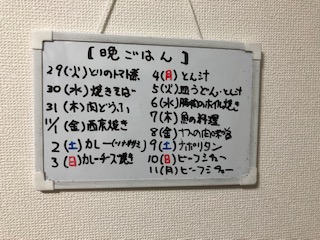 [晩ごはん]
29(火)とりのトマト煮
30(水)焼きそば
31(木)肉どうふ
11/1(金)西京焼き
2(土)カレー
3(日)カレーチーズ焼き
4(月)とん汁
5(火)皿うどん・とん汁
6(水)ホイル焼き
7(木)魚の料理
8(金)肉味噌
9(土)ナポリタン
10(日)ビーフシチュー
11(月)ビーフシチュー